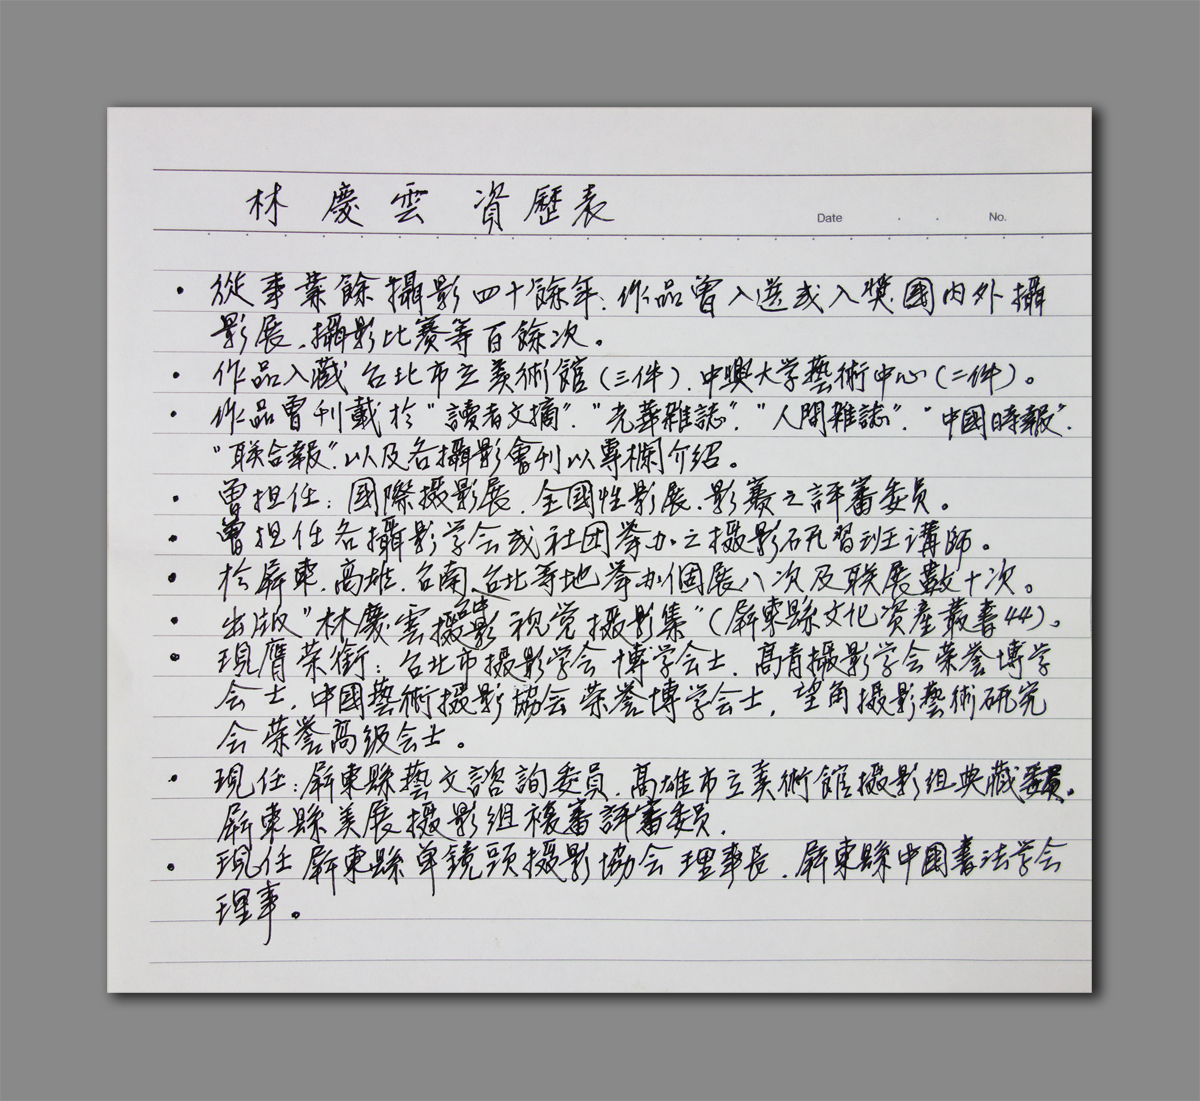 林慶雲 資歷表
Date . . No.
• 從事業餘攝影四十餘年、作品曾入选或入獎國內外攝
影展、攝影比賽等百餘次。
• 作品入藏 台北市立美術館(三件)、中興大学藝術中心(二件)。
• 作品曾刊載於"讀者文摘"、"光華雜誌"、"人間雜誌"、"中國時報"、
"联合報"、以及各攝影會刊以專欄介绍。
• 曾担任:國際摄影展、全國性影展、影賽之評審委員。
• 曾担任各攝影学会或社団举办之摄影研習班講師。
• 於屏東、高雄、台南、台北等地举办個展八次及联展數十次。
• 出版"林慶雲 視覚摄影集"(屏東縣文化資產叢書44)。
• 現膺荣銜:台北市摄影学会 博学会士、高青攝影学会荣誉博学
会士、中國藝術摄影協会荣誉博学会士、望角摄影藝術研究
会荣誉高级会士。
• 現任:屏東縣藝文諮詢委員、高雄市立美術館摄影组典藏委員。
屏東縣美展摄影组複審評審委員、
• 現任 屏東縣单鏡頭摄影協会 理事長、屏東縣中国書法学会
理事。